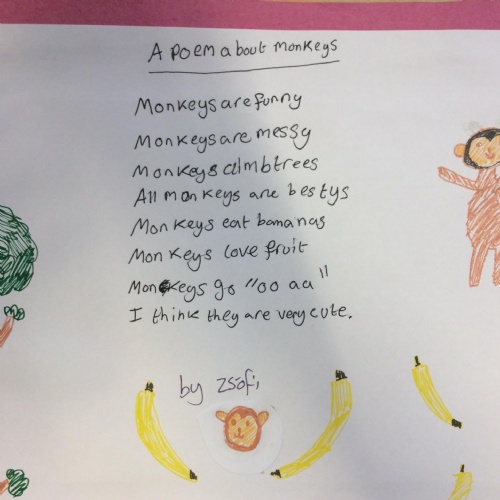 A poem about monkeys
Monkeys are funny
Monkeys are messy
Monkeys climb trees
All monkeys are bestys
Monkeys eat bananas
Monkeys love fruit
Monkeys go "oo aa"
I think they are very cute.
by Zsófi